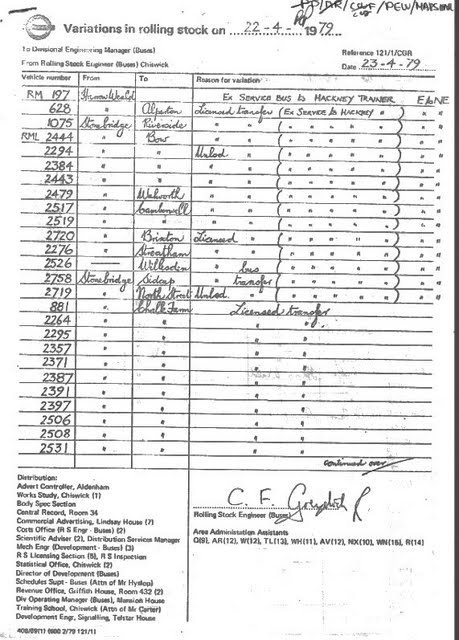 PP/DR/CWF/PEW/
Variations in rolling stock on 22-4-1979
To Divisional Engineering Manager (Buses)
Reference 121/1/CGR
From Rolling Stock Engineer (Buses) Chiswick
Date 23-4-79
Vehicle number From To Reason for variation
RM 197 Harrow Weald Ex Service Bus to Hackney Trainer E&NE
628 " Alperton Licensed transfer (Ex Service to Hackney " ) " "
1075 Stonebridge Riverside " " ( " " " " " ) " "
RML 2444 " Bow " " ( " " " " " ) " "
2294 " " Unlsd " ( " " " " " ) " "
2384 " " " " ( " " " " " ) " "
2443 " " " " ( " " " " " ) " "
2479 " Walworth " " ( " " " " " ) " "
2517 " Camberwell " " ( " " " " " ) " "
2519 " " " " ( " " " " " ) " "
2720 " Brixton Licensed " ( " " " " " ) " "
2276 " Streatham " " ( " " " " " ) " "
2526 — Willesden " bus ( " " " " " ) " "
2758 Stonebridge Sidcup " transfer ( " " " " " ) " "
2719 " North Street Unlsd. " ( " " " " " ) " "
881 " Chalk Farm Licensed transfer
2264 " " " "
2295 " " " "
2357 " " " "
2371 " " " "
2387 " " " "
2391 " " " "
2397 " " " "
2506 " " " "
2508 " " " "
2531 " " " "
continued over
Distribution:
Advert Controller, Aldenham
Works Study, Chiswick (1)
Body Spec Section
Central Record, Room 34
Commercial Advertising, Lindsay House (7)
Costs Office (R S Engr - Buses) (2)
Scientific Adviser (2), Distribution Services Manager
Mech Engr (Development - Buses) (3)
R S Licensing Section (5), R S Inspection
Statistical Office, Chiswick (2)
Director of Development (Buses)
Schedules Supt - Buses (Attn of Mr Hyslop)
Revenue Office, Griffith House, Room 432 (2)
Div Operating Manager (Buses), Mansion House
Training School, Chiswick (Attn of Mr Carter)
Development Engr, Signalling, Telstar House
C. F.
Rolling Stock Engineer (Buses)
Area Administration Assistants
Q(9), AR(12), W(12), TL(13), WH(11), AV(12), NX(10), WN(15), R(14)